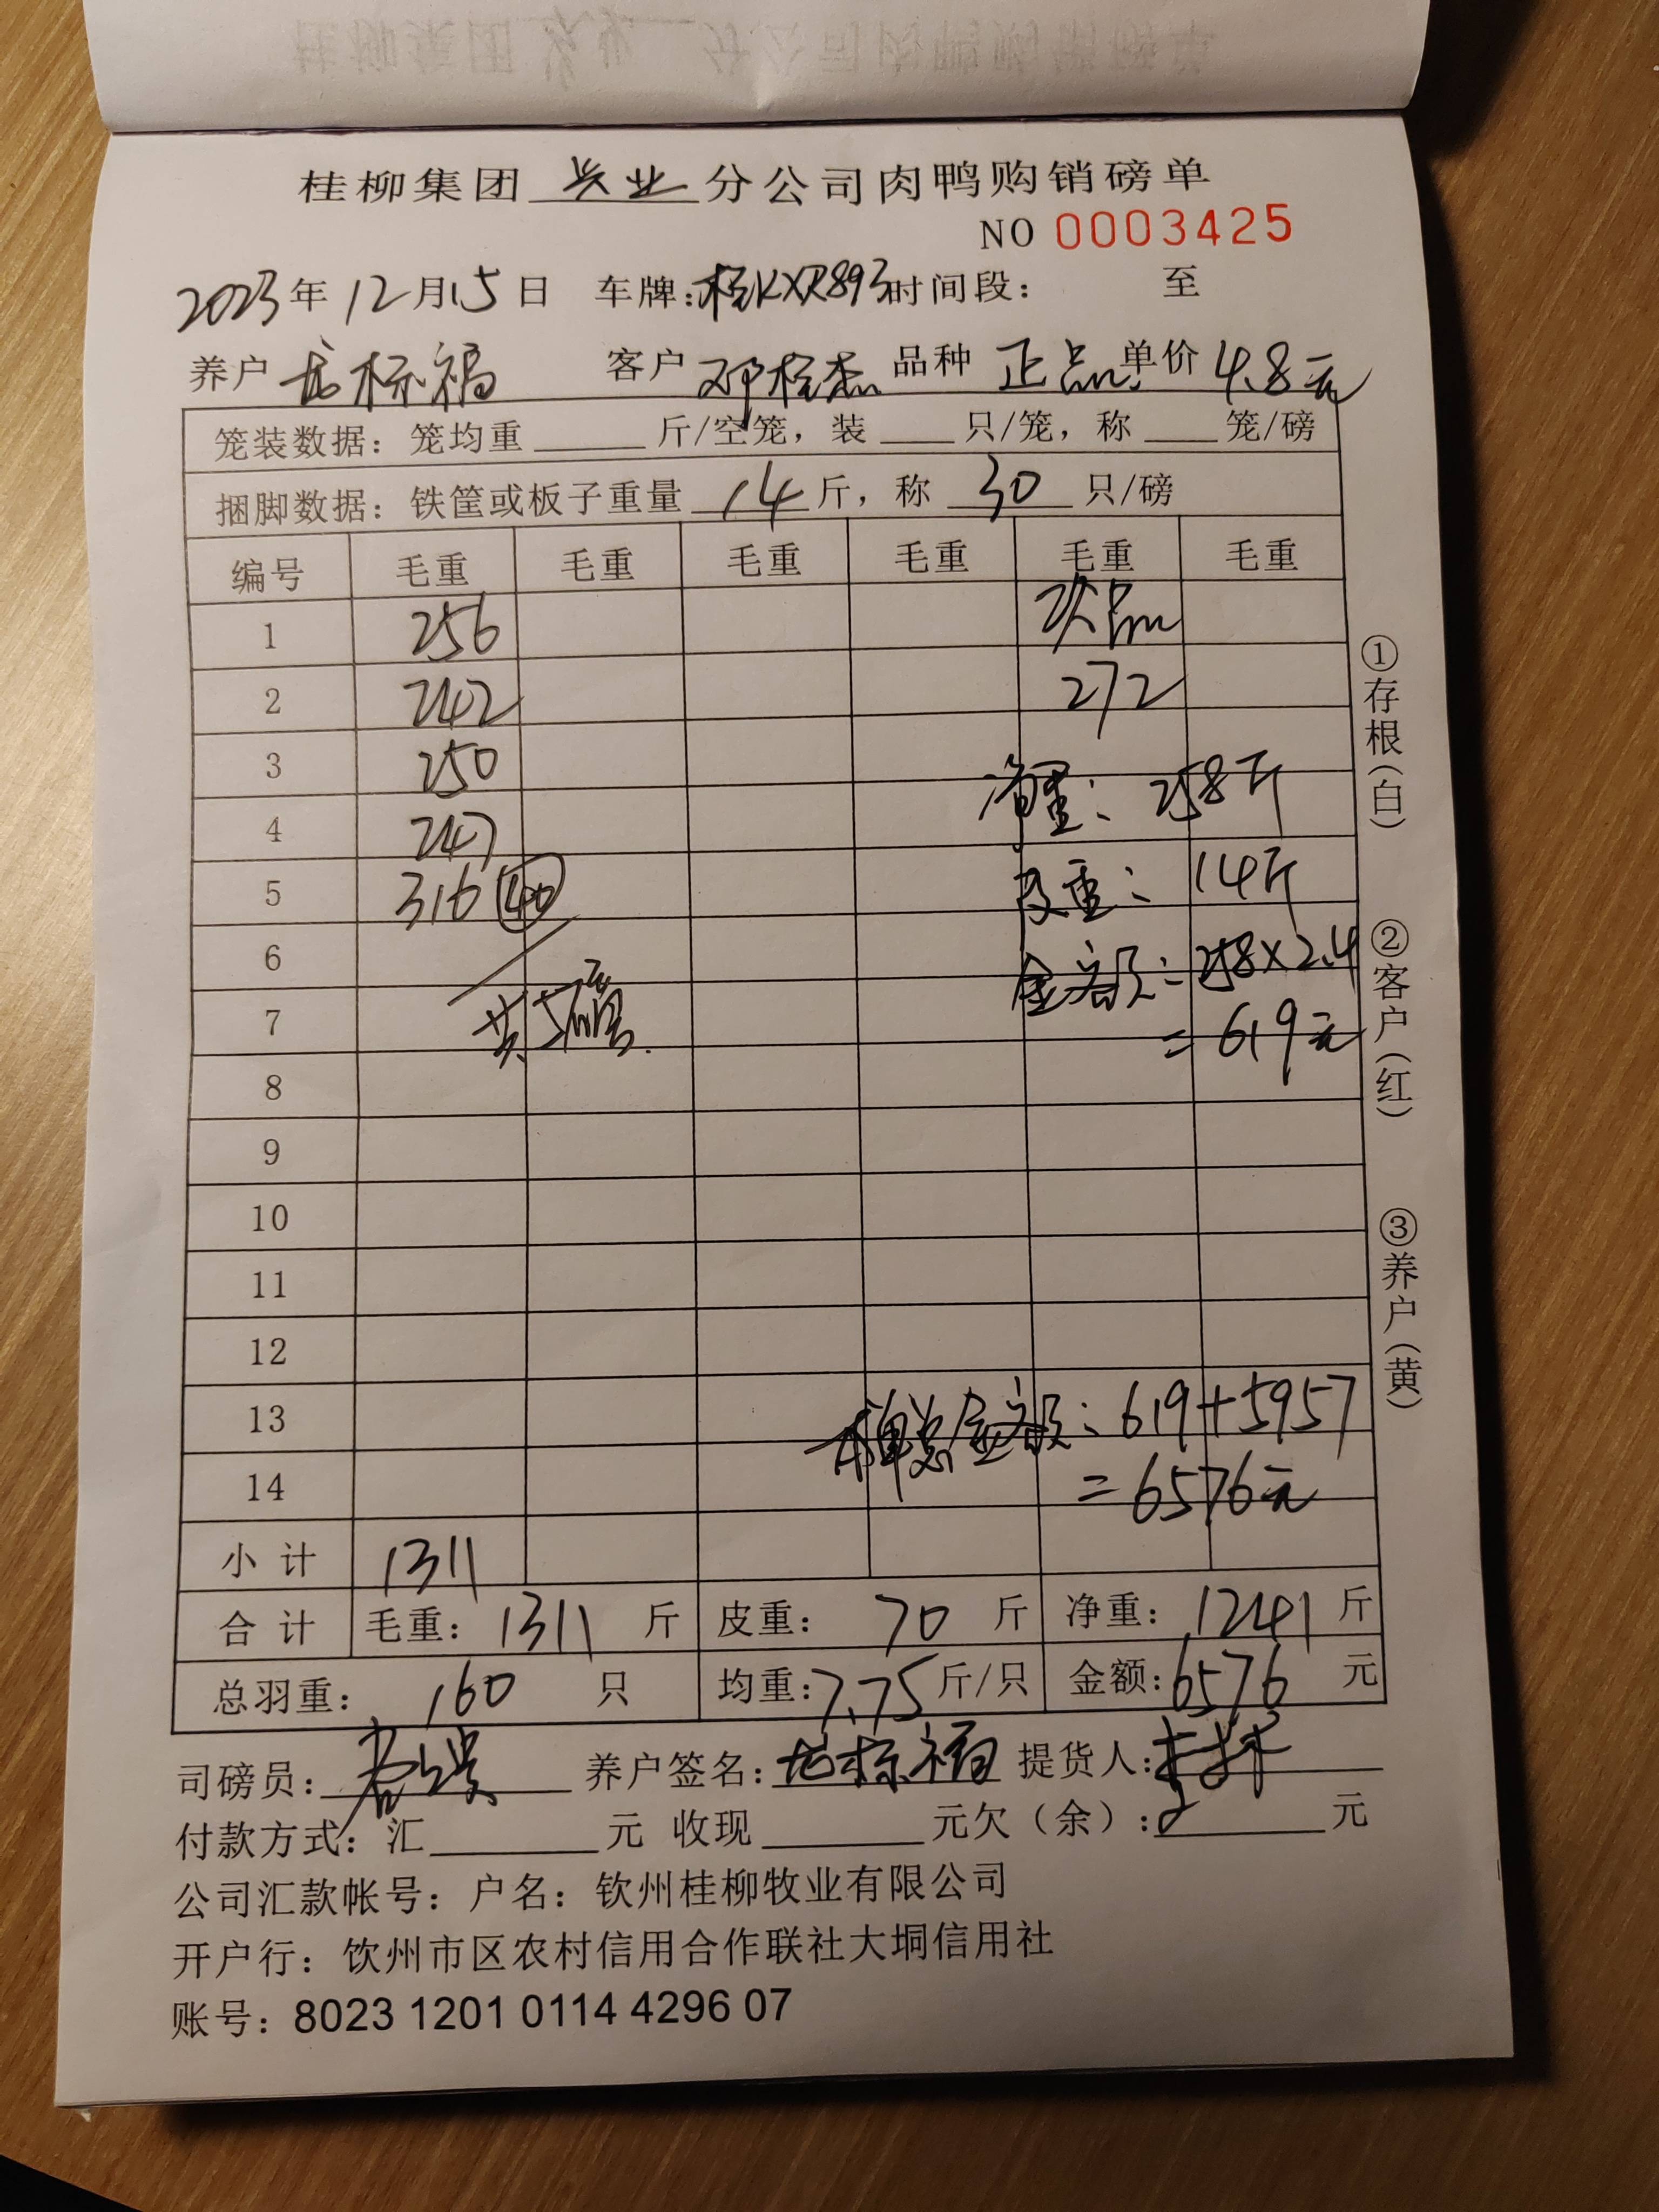 桂柳集团 兴业 分公司肉鸭购销磅单
NO 0003425
2023年12月15日 车牌:桂KXR893 时间段: 至
养户 龙标福 客户 邓桂杰 品种 正品 单价 4.8元
笼装数据: 笼均重 斤/空笼, 装 只/笼, 称 笼/磅
捆脚数据: 铁筐或板子重量 14 斤, 称 30 只/磅
编号 毛重 毛重 毛重 毛重 毛重 毛重
1 256 次品
2 242 272
3 250 净重: 258斤
4 247
5 316 (40) 皮重: 14斤
6 金额: 258×2.4
7 共5磅. = 619元
8
9
10
11
12
13 本单总金额: 619+5957
14 = 6576元
小计 1311
合计 毛重: 1311 斤 皮重: 70 斤 净重: 1241 斤
总羽重: 160 只 均重: 7.75 斤/只 金额: 6576 元
司磅员: 养户签名: 龙标福 提货人:
付款方式: 汇 元 收现 元欠（余）: 元
公司汇款帐号: 户名: 钦州桂柳牧业有限公司
开户行: 饮州市区农村信用合作联社大垌信用社
账号: 8023 1201 0114 4296 07
①存根（白）
②客户（红）
③养户（黄）